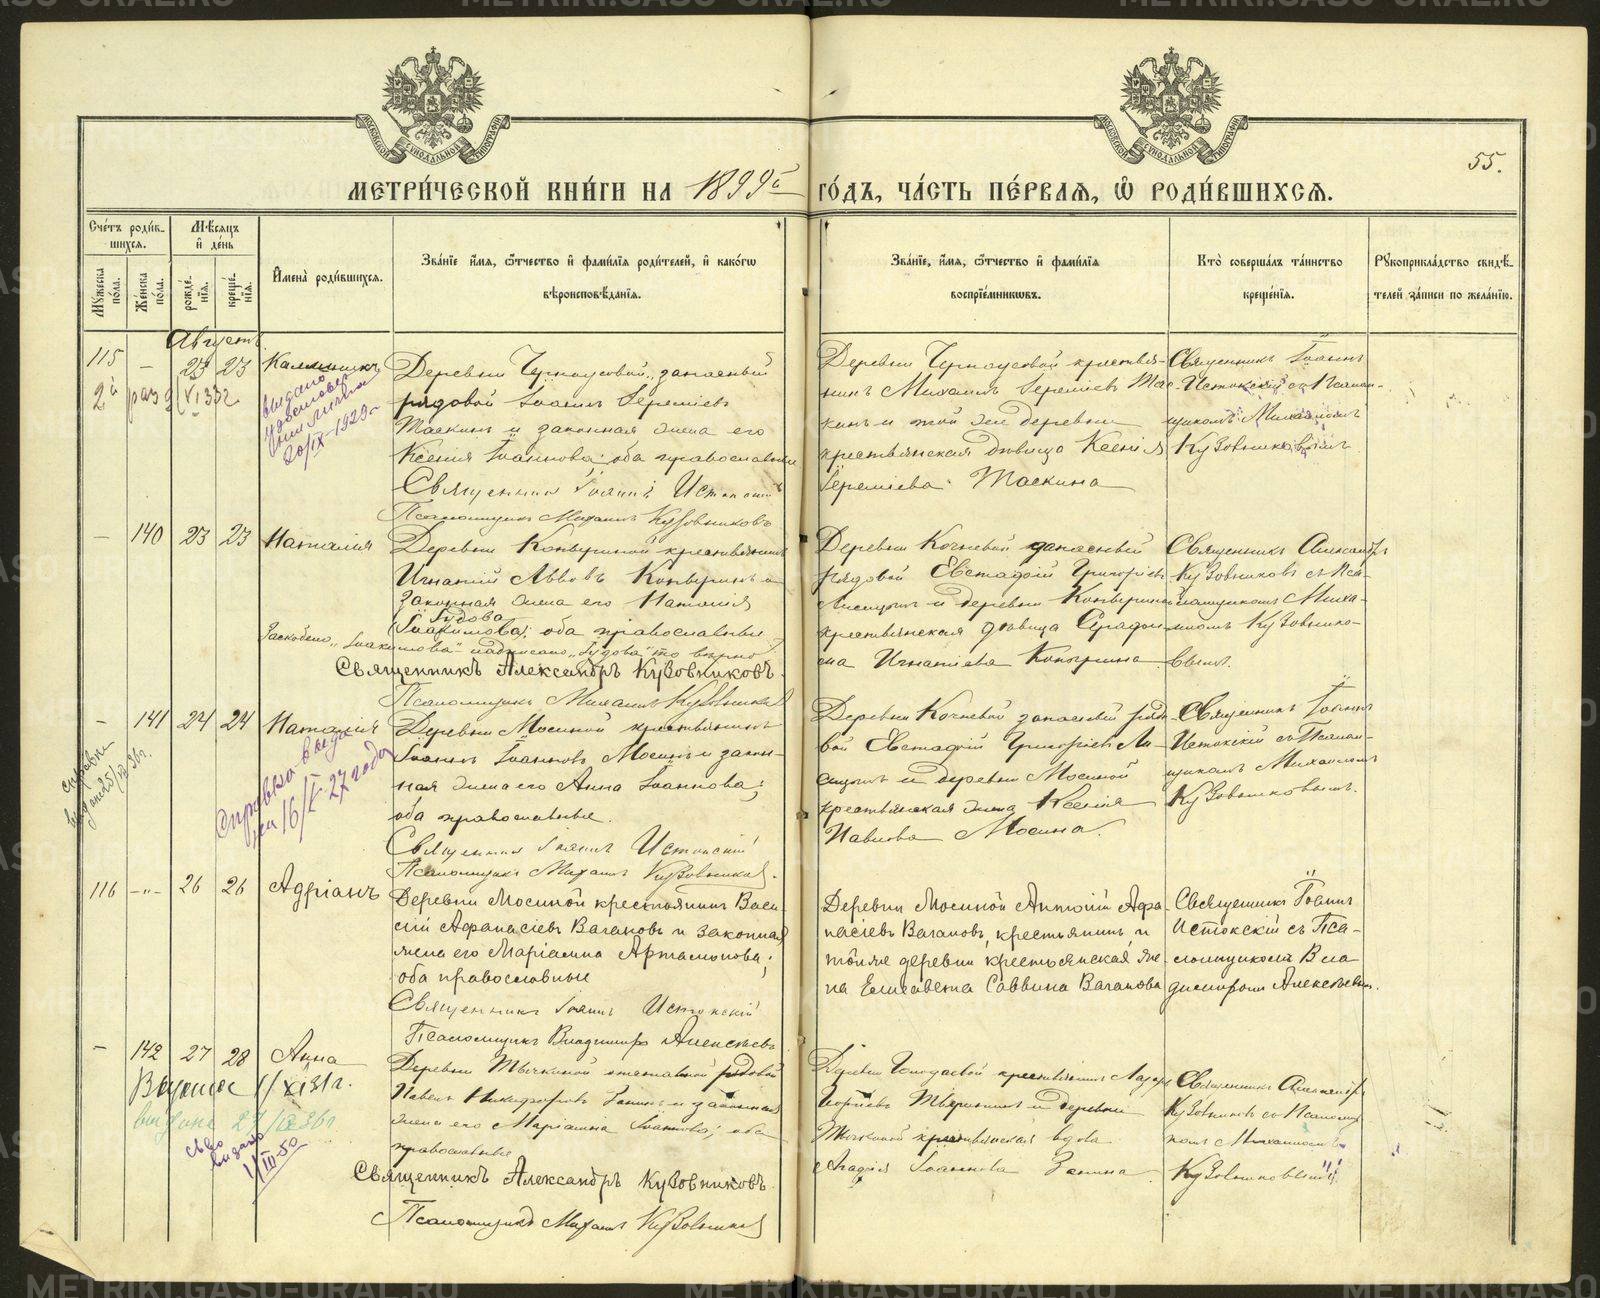 МЕТРИ́ЧЕСКОЙ КНИ́ГИ НА 1899й ГО́ДЪ, ЧА́СТЬ ПЕ́РВАѦ, Ѽ РОДИ́ВШИХСѦ.
55.
Сче́тъ роди́в-
шихся.
Мѣ́сяцъ
и де́нь
Мꙋжеска по́ла.
Же́нска по́ла.
рожде́-
нія.
креще́-
нія.
Имена̀ роди́вшихся.
Зва́нїе имя, о́тчество и фами́лїя роди́телей, и како́гѡ
вѣроисповѣ́данїя.
Зва́нїе, имя, о́тчество и фами́лїя
воспрїе́мникѡвъ.
Кто̀ соверша́лъ та́инство
креще́нїя.
Рꙋкоприкла́дство свидѣ́-
телей за́писи по жела́нїю.
Августъ
115 – 23 23 Каллиникъ
2й разд VI 33г
выдано
20/IX-1929г
Деревни Черноусовой, запасный
рядовой Іоаннъ Іереміевъ
Таскинъ и законная жена его
Ксенія Іоаннова; оба православные
Священникъ Іоаннъ Истокскій
Псаломщикъ Михаилъ Кузовниковъ
Деревни Черноусовой крестья-
нинъ Михаилъ Іереміевъ Тас-
кинъ и той же деревни
крестьянская дѣвица Ксенія
Іереміева Таскина
Священникъ Іоаннъ
Истокскій съ Псалом-
щикомъ Михаиломъ
Кузовниковымъ
– 140 23 23 Наталія
Деревни крестьянинъ
Игнатій Львовъ и
законная жена его Наталія
Гудова
(Іоакимова); оба православные
Заскоблено „Іоакимова" надписано „Гудова" то вѣрно
Священникъ Александръ Кузовниковъ.
Псаломщикъ Михаилъ Кузовниковъ
Деревни Кочневой запасный
рядовой Евстафій Григорьевъ
Лисицынъ и деревни
крестьянская дѣвица Серафи-
ма Игнатіева
Священникъ Александръ
Кузовниковъ съ Пса-
ломщикомъ Миха-
иломъ Кузовнико-
вымъ.
– 141 24 24 Наталія
справка
выдана 25/ 36г.
Справка выдана
16/V-27 года
Деревни Мосиной крестьянинъ
Іоаннъ Іоанновъ Мосинъ и закон-
ная жена его Анна Іоаннова;
оба православные.
Священникъ Іоаннъ Истокскій
Псаломщикъ Михаилъ Кузовниковъ.
Деревни Кочневой запасный рядо-
вой Евстафій Григорьевъ Ли-
сицынъ и деревни Мосиной
крестьянская жена Ксенія
Павлова Мосина.
Священникъ Іоаннъ
Истокскій съ Псалом-
щикомъ Михаиломъ
Кузовниковымъ.
116 –„– 26 26 Адріанъ
Деревни Мосиной крестьянинъ Васи-
лій Афанасіевъ Вагановъ и законная
жена его Маріамна Артамонова;
оба православные
Священникъ Іоаннъ Истокскій
Псаломщикъ Владимиръ Алексѣевъ
Деревни Мосиной Антоній Афа-
насіевъ Вагановъ, крестьянинъ, и
тойже деревни крестьянская же-
на Елисавета Саввина Ваганова
Священникъ Іоаннъ
Истокскій съ Пса-
ломщикомъ Вла-
димиромъ Алексѣевымъ.
– 142 27 28 Анна
11/XI 31г.
выдана 27/ 36г
св-во
выдано
1/III-50
Деревни отставной рядовой
Павелъ Никифоровъ и законная
жена его Маріамна Іоаннова; оба
православные
Священникъ Александръ Кузовниковъ.
Псаломщикъ Михаилъ Кузовниковъ
Деревни крестьянинъ
и деревни
крестьянская вдова
Іоаннова
Священникъ Александръ
Кузовниковъ съ Псаломщи-
комъ Михаиломъ
Кузовниковымъ
METRIKI.GASU-URAL.RU